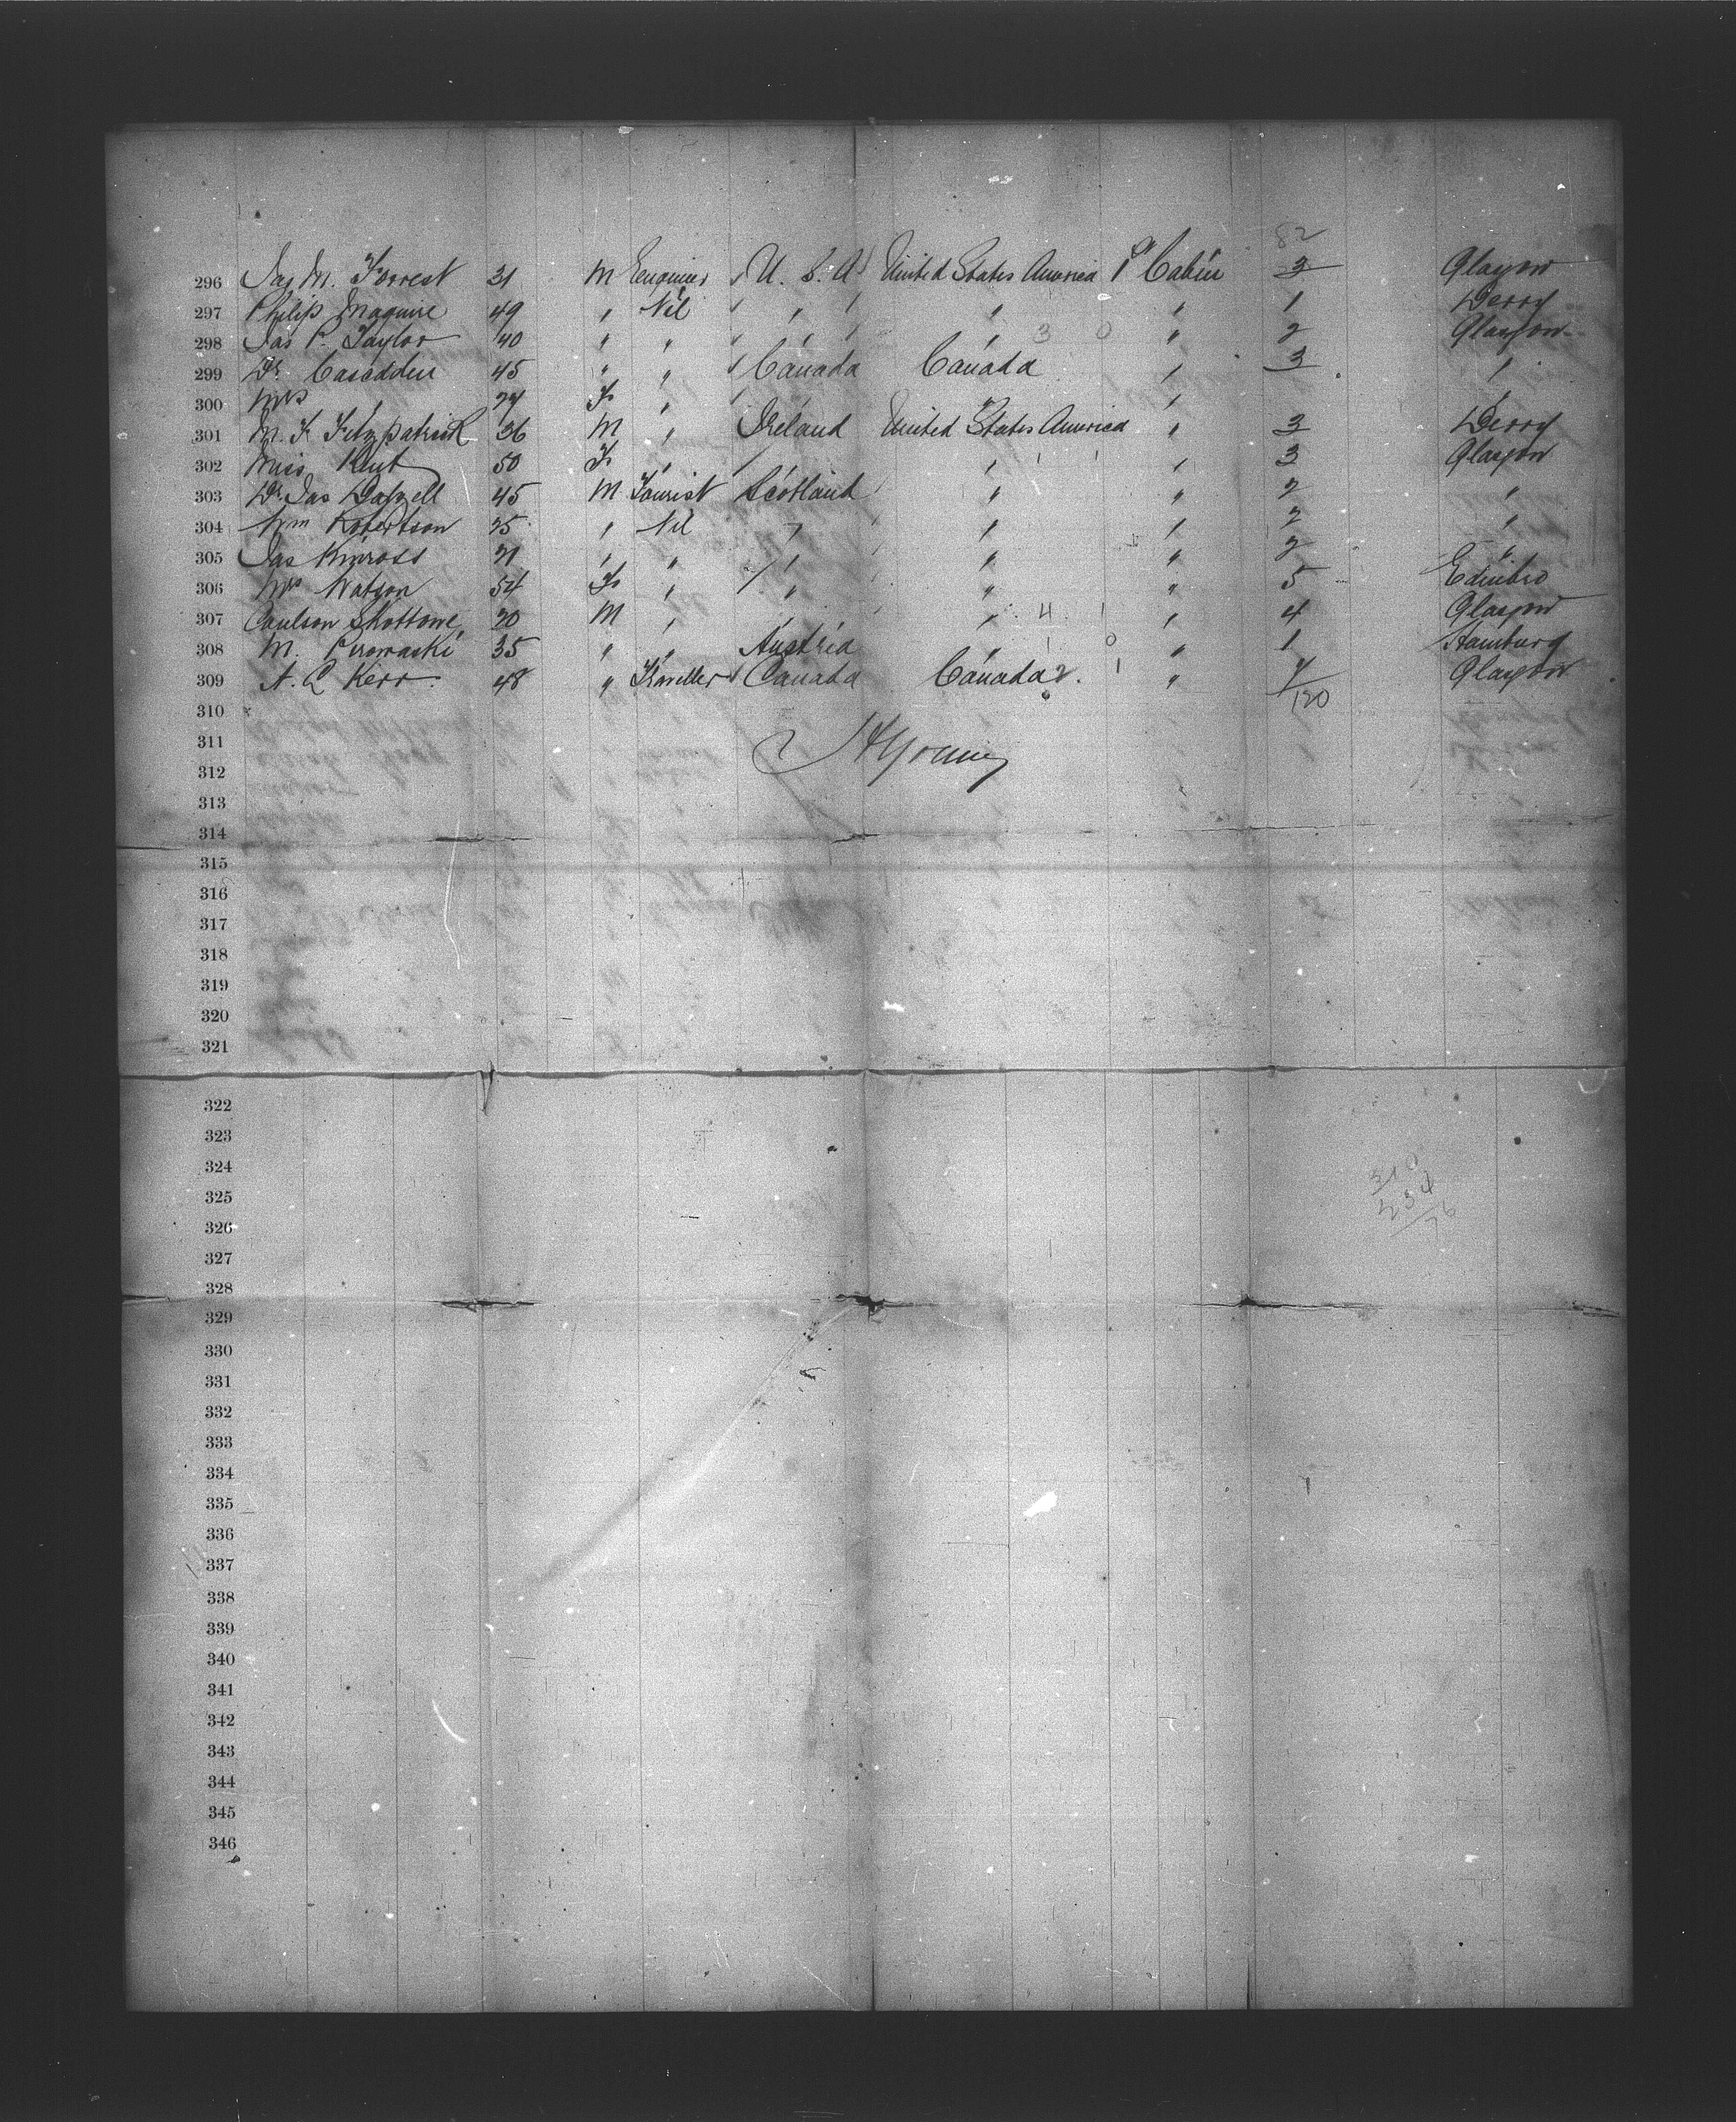 82
296 Jas M. Forrest 31 M Enquirer U. S. A United States America 1st Cabin 3 Glasgow
297 Philip Maguire 49 " Nil " " " 1 Derry
298 Jas P. Taylor 40 " " " " 3 0 " 2 Glasgow
299 Dr. Cascadden 45 " " Canada Canada " 3 "
300 Mrs " F " " "
301 M. F. Fitzpatrick 36 M " Ireland United States America " 3 Derry
302 Miss Kent 50 F " " " " 3 Glasgow
303 Dr. Jas Dalzell 45 M Tourist Scotland " " 2 "
304 Wm Robertson 25 " Nil " " " 2 "
305 Jas Kinross 21 " " " " " 2 "
306 Mrs Watson 54 F " " " " 5 Edinbro
307 Coulson Skottowe 20 M " " " 4 1 " 4 Glasgow
308 M. 35 " " Austria " 1 0 " 1 Hamburg
309 A. L Kerr 48 " Traveller Canada Canada 2. 1 " Glasgow
310 120
311 Young
312
313
314
315
316
317
318
319
320
321
322
323
324 310
325 234
326 76
327
328
329
330
331
332
333
334
335
336
337
338
339
340
341
342
343
344
345
346